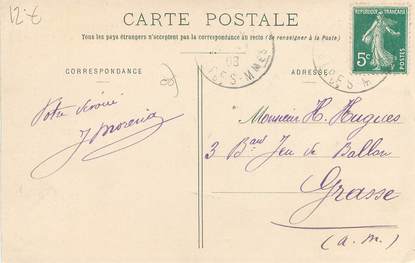 12-€
CARTE POSTALE
Tous les pays étrangers n'acceptent pas la correspondance au recto (Se renseigner à la Poste)
CORRESPONDANCE
ADRESSE
REPUBLIQUE FRANÇAISE
5c
08
Votre dévoué
Monsieur H. Hugues
3 Bard Jeu de Ballon
Grasse
(a. m.)